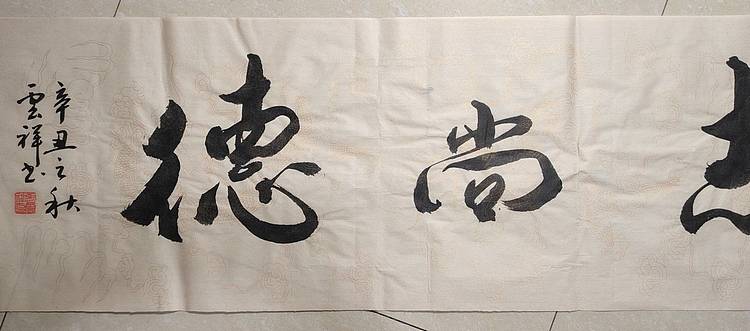 尚德
辛丑之秋
雲祥书